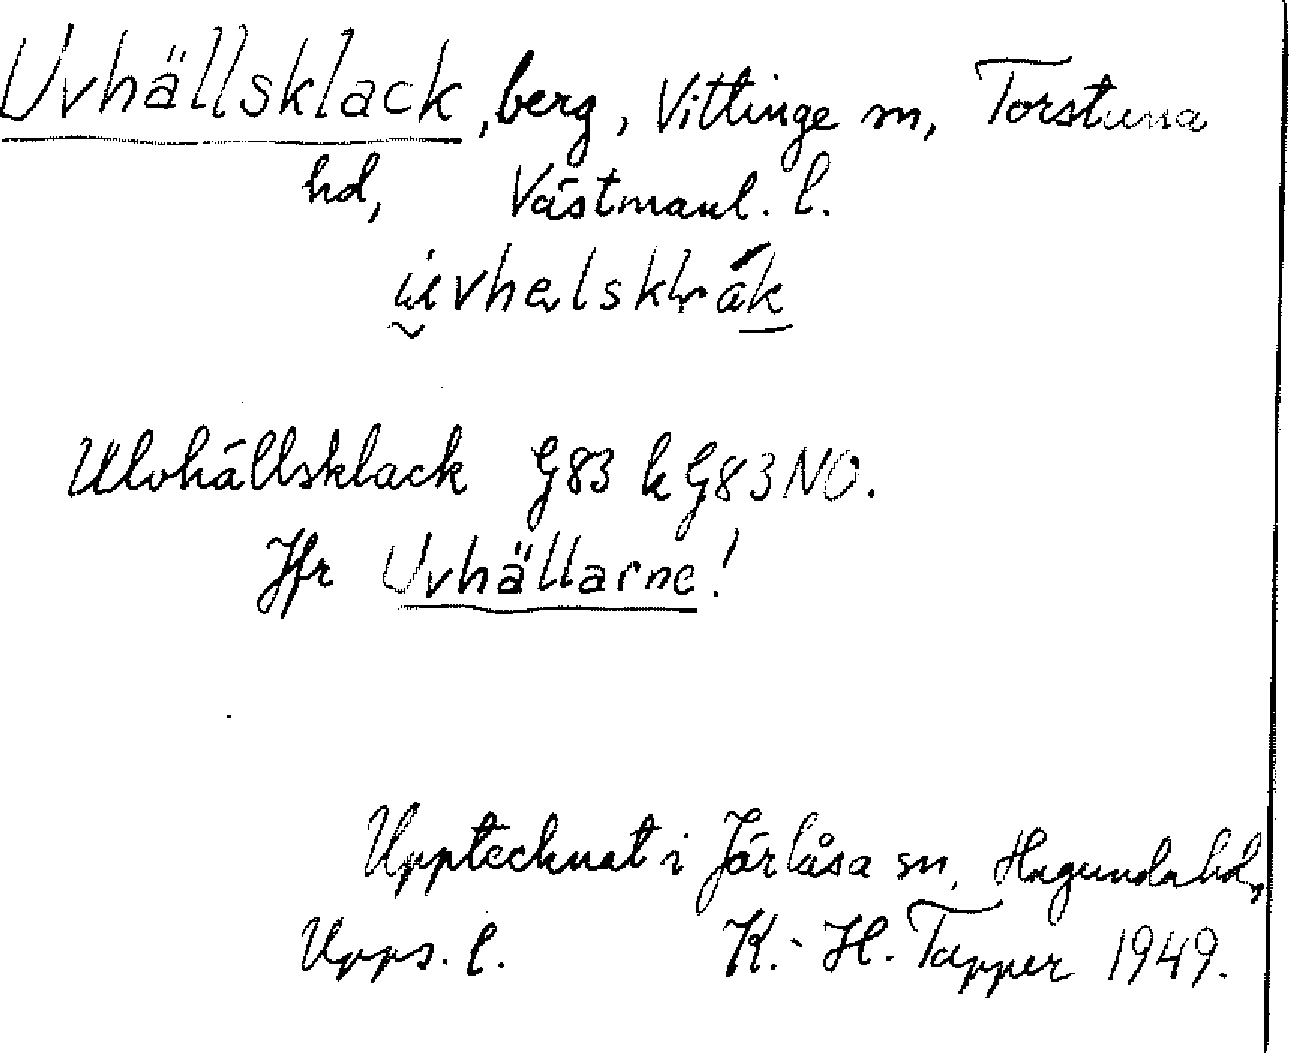 Uvhällsklack, berg, Vittinge sn, Torstuna
hd, Västmanl. l.
Ulvhällsklack G83 k G83 NO.
Jfr Uvhällarne!
Upptecknat i Järlåsa sn, Hagunda hd,
Upps. l. K.-H. Tapper 1949.